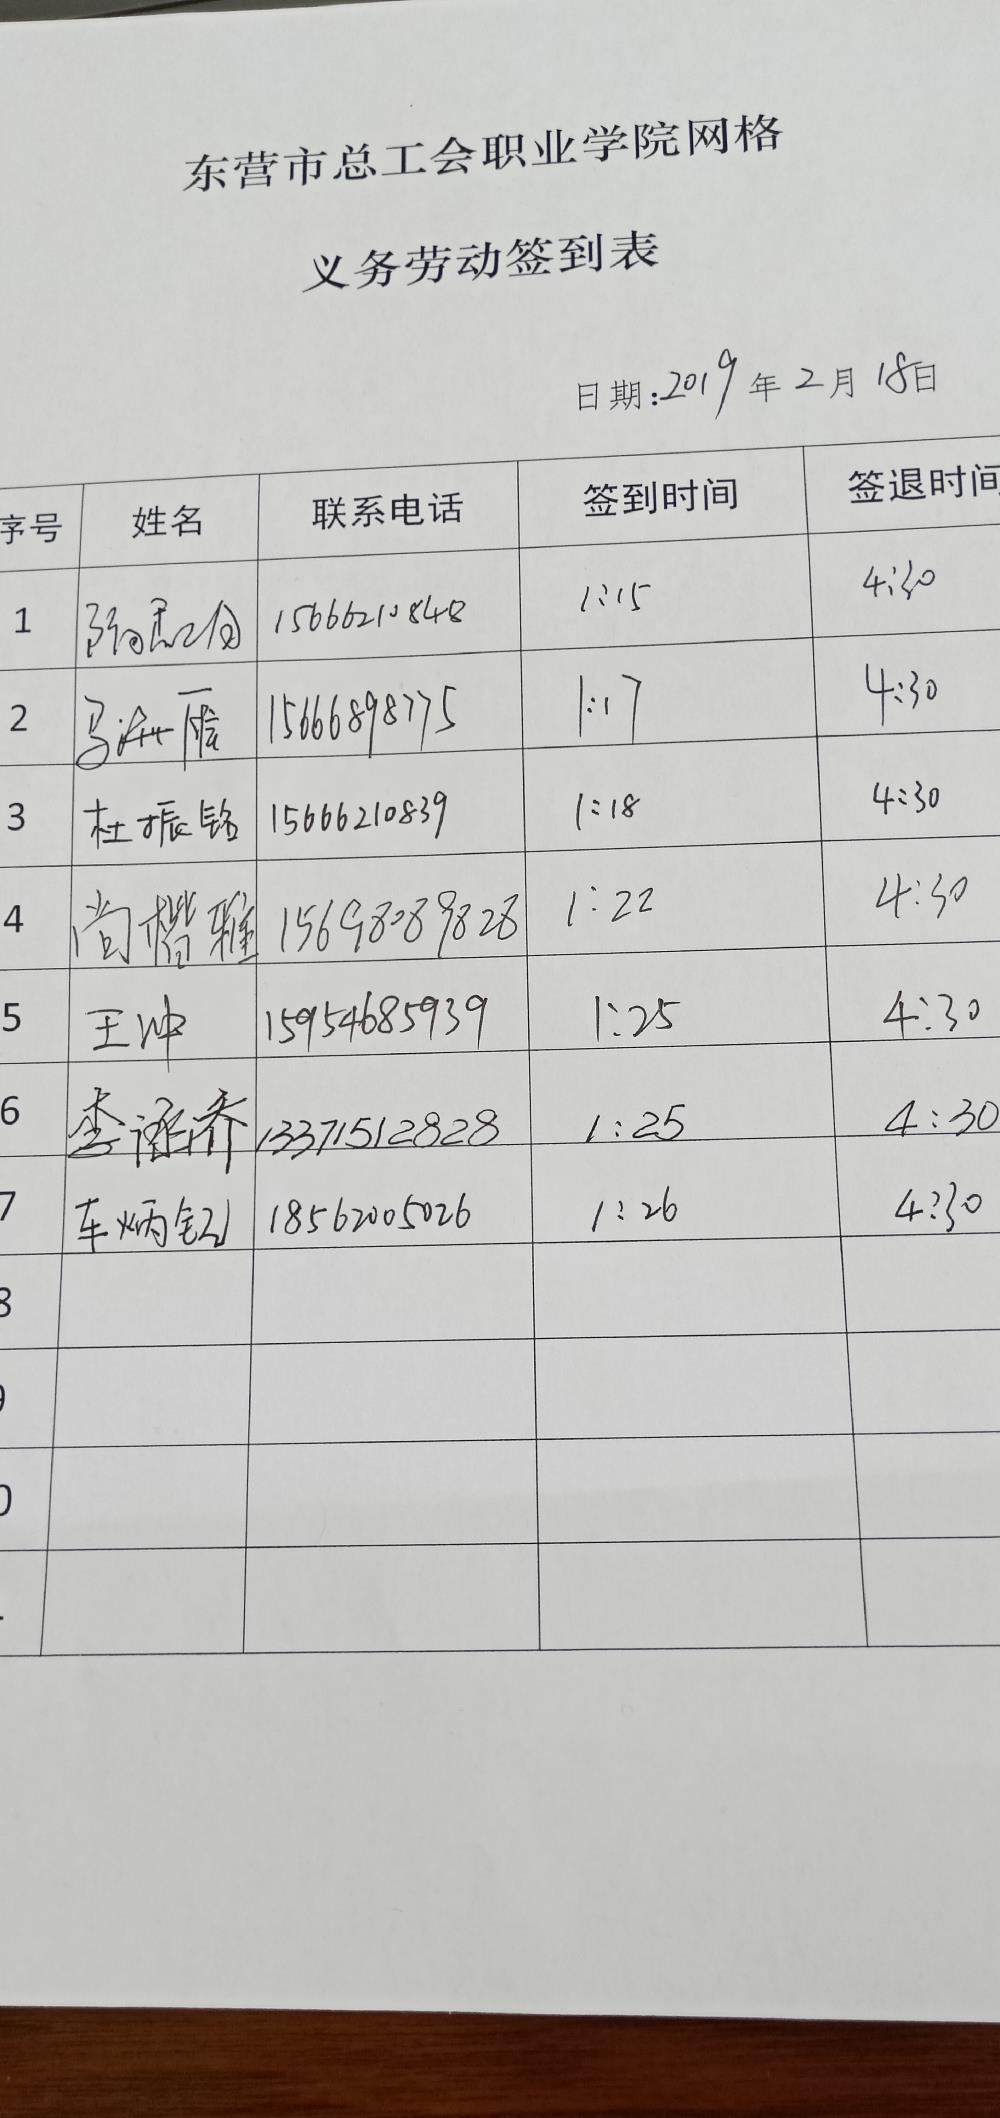 东营市总工会职业学院网格
义务劳动签到表
日期:2019年2月18日
序号 姓名 联系电话 签到时间 签退时间
1 15666210848 1:15 4:30
2 马 15666898775 1:17 4:30
3 杜振铭 15666210839 1:18 4:30
4 尚楷雅 15698089828 1:22 4:30
5 王冲 15954685939 1:25 4:30
6 李 乔 13371512828 1:25 4:30
7 车炳钊 18562005026 1:26 4:30
8
9
0